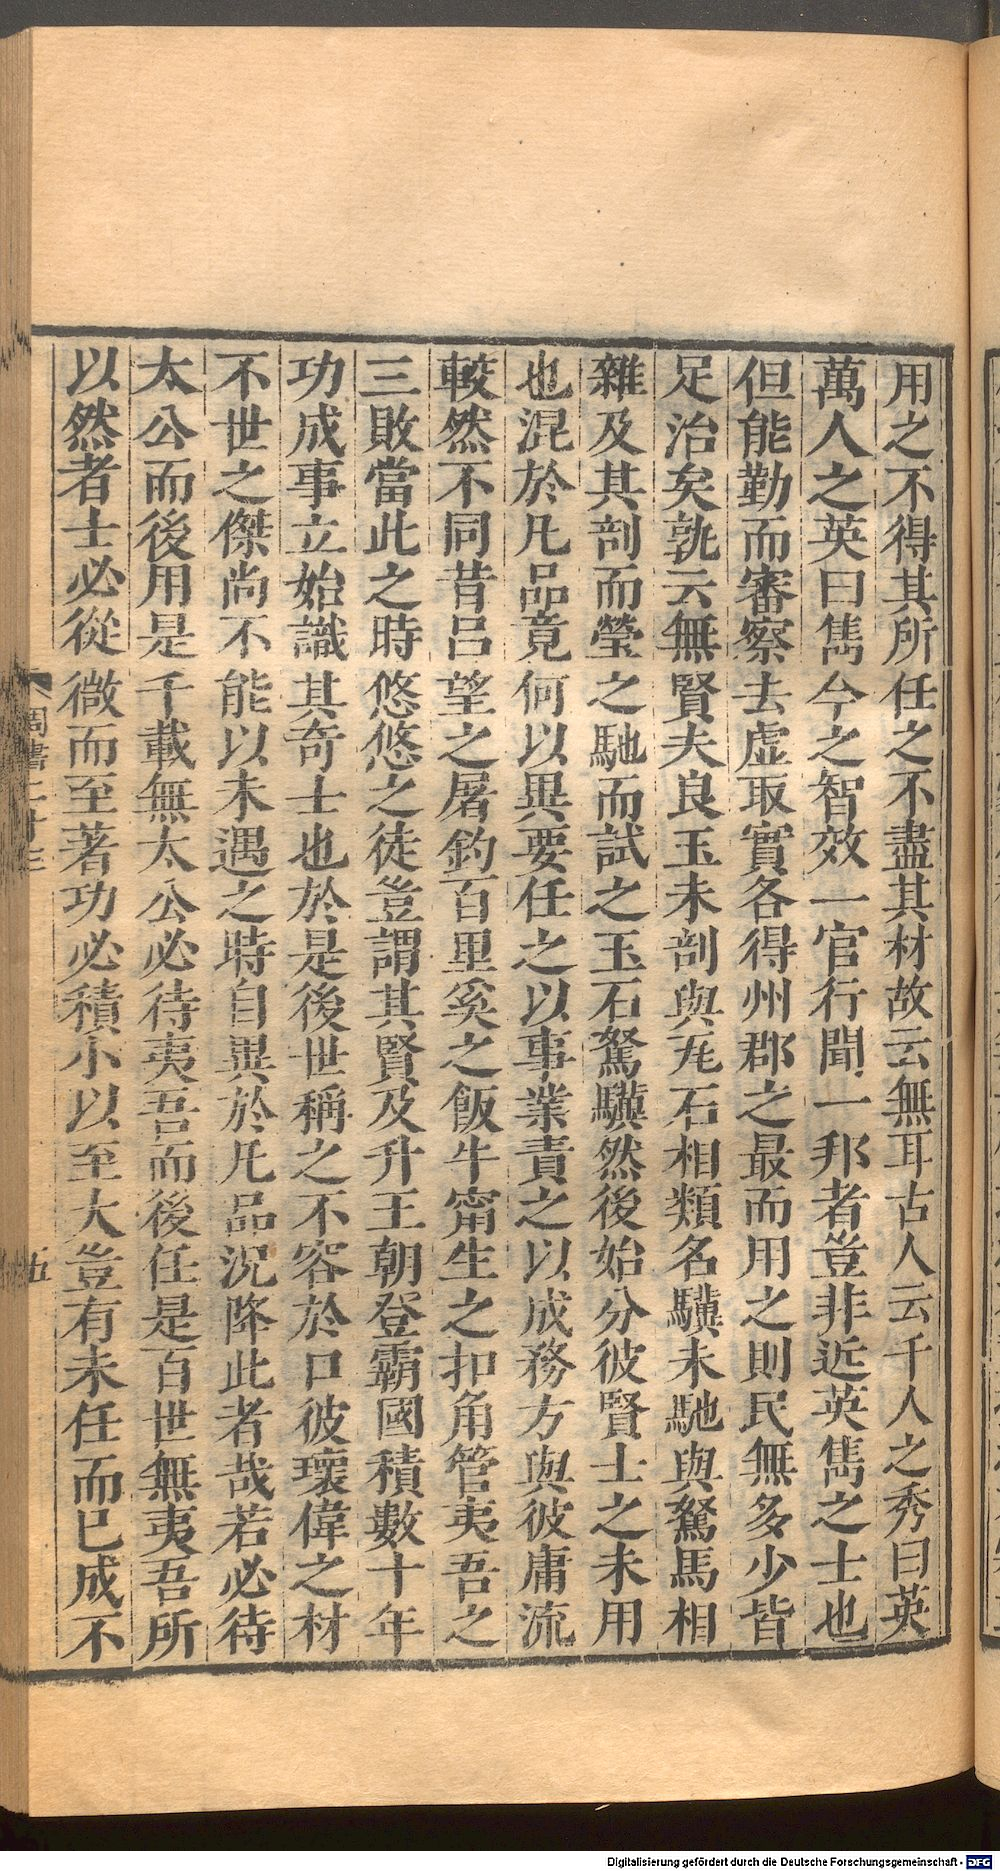 用之不得其所任之不盡其材故云無耳古人云千人之秀曰英
萬人之英曰雋今之智效一官行聞一邦者豈非近英雋之士也
但能勤而審察去虛取實各得州郡之最而用之則民無多少皆
足治矣孰云無賢夫良玉未剖與瓦石相類名驥未馳與駑馬相
雜及其剖而瑩之馳而試之玉石駑驥然後始分彼賢士之未用
也混於凡品竟何以異要任之以事業責之以成務方與彼庸流
較然不同昔呂望之屠釣百里奚之飯牛甯生之扣角管夷吾之
三敗當此之時悠悠之徒豈謂其賢及升王朝登霸國積數十年
功成事立始識其奇士也於是後世稱之不容於口彼瓌偉之材
不世之傑尚不能以未遇之時自異於凡品況降此者哉若必待
太公而後用是千載無太公必待夷吾而後任是百世無夷吾所
以然者士必從微而至著功必積小以至大豈有未任而已成不
周書二十三
五
Digitalisierung gefördert durch die Deutsche Forschungsgemeinschaft - DFG